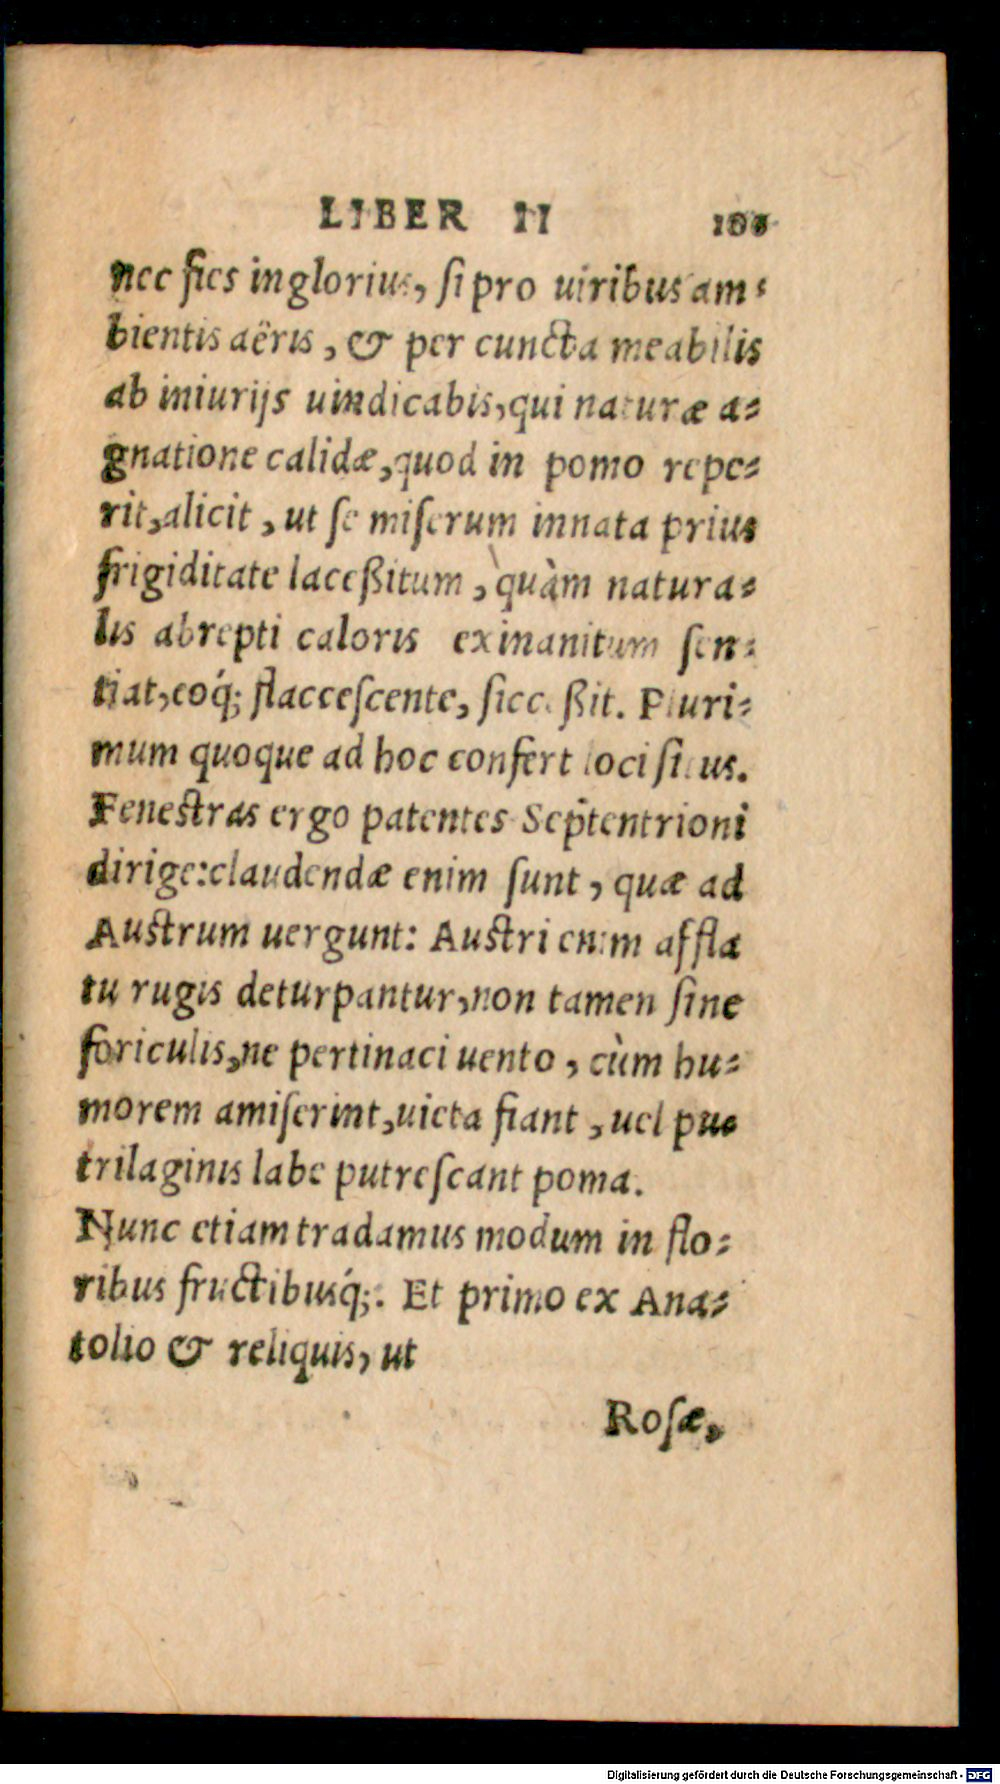 LIBER II
nec fies inglorius, ſi pro uiribus am-
bientis aëris, & per cuncta meabilis
ab iniurijs uindicabis, qui naturæ a-
gnatione calidæ, quod in pomo repe-
rit, alicit, ut ſe miſerum innata prius
frigiditate laceßitum, quàm natura-
lis abrepti caloris exinanitum ſen-
tiat, eoq́; flacceſcente, ſicceßit. Pluri-
mum quoque ad hoc confert loci ſitus.
Feneſtras ergo patentes Septentrioni
dirige: claudendæ enim ſunt, quæ ad
Auſtrum uergunt: Auſtri enim affla
tu rugis deturpantur, non tamen ſine
foriculis, ne pertinaci uento, cùm hu-
morem amiſerint, uieta fiant, uel pu-
trilaginis labe putreſcant poma.
Nunc etiam tradamus modum in flo-
ribus fructibusq́;. Et primo ex Ana-
tolio & reliquis, ut
Roſæ,
Digitalisierung gefördert durch die Deutsche Forschungsgemeinschaft - DFG